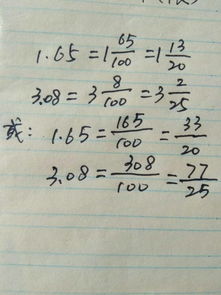 1.65 = 1 65/100 = 1 13/20
3.08 = 3 8/100 = 3 2/25
或: 1.65 = 165/100 = 33/20
3.08 = 308/100 = 77/25